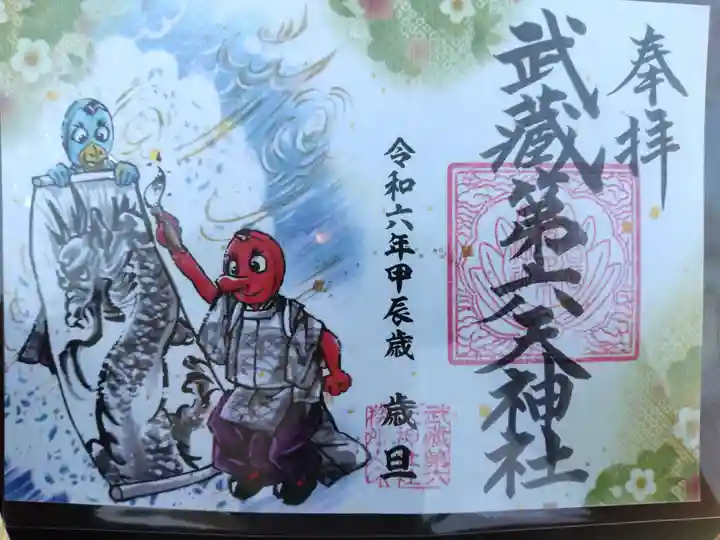 奉拝
武蔵第六天神社
令和六年甲辰歳 歳旦